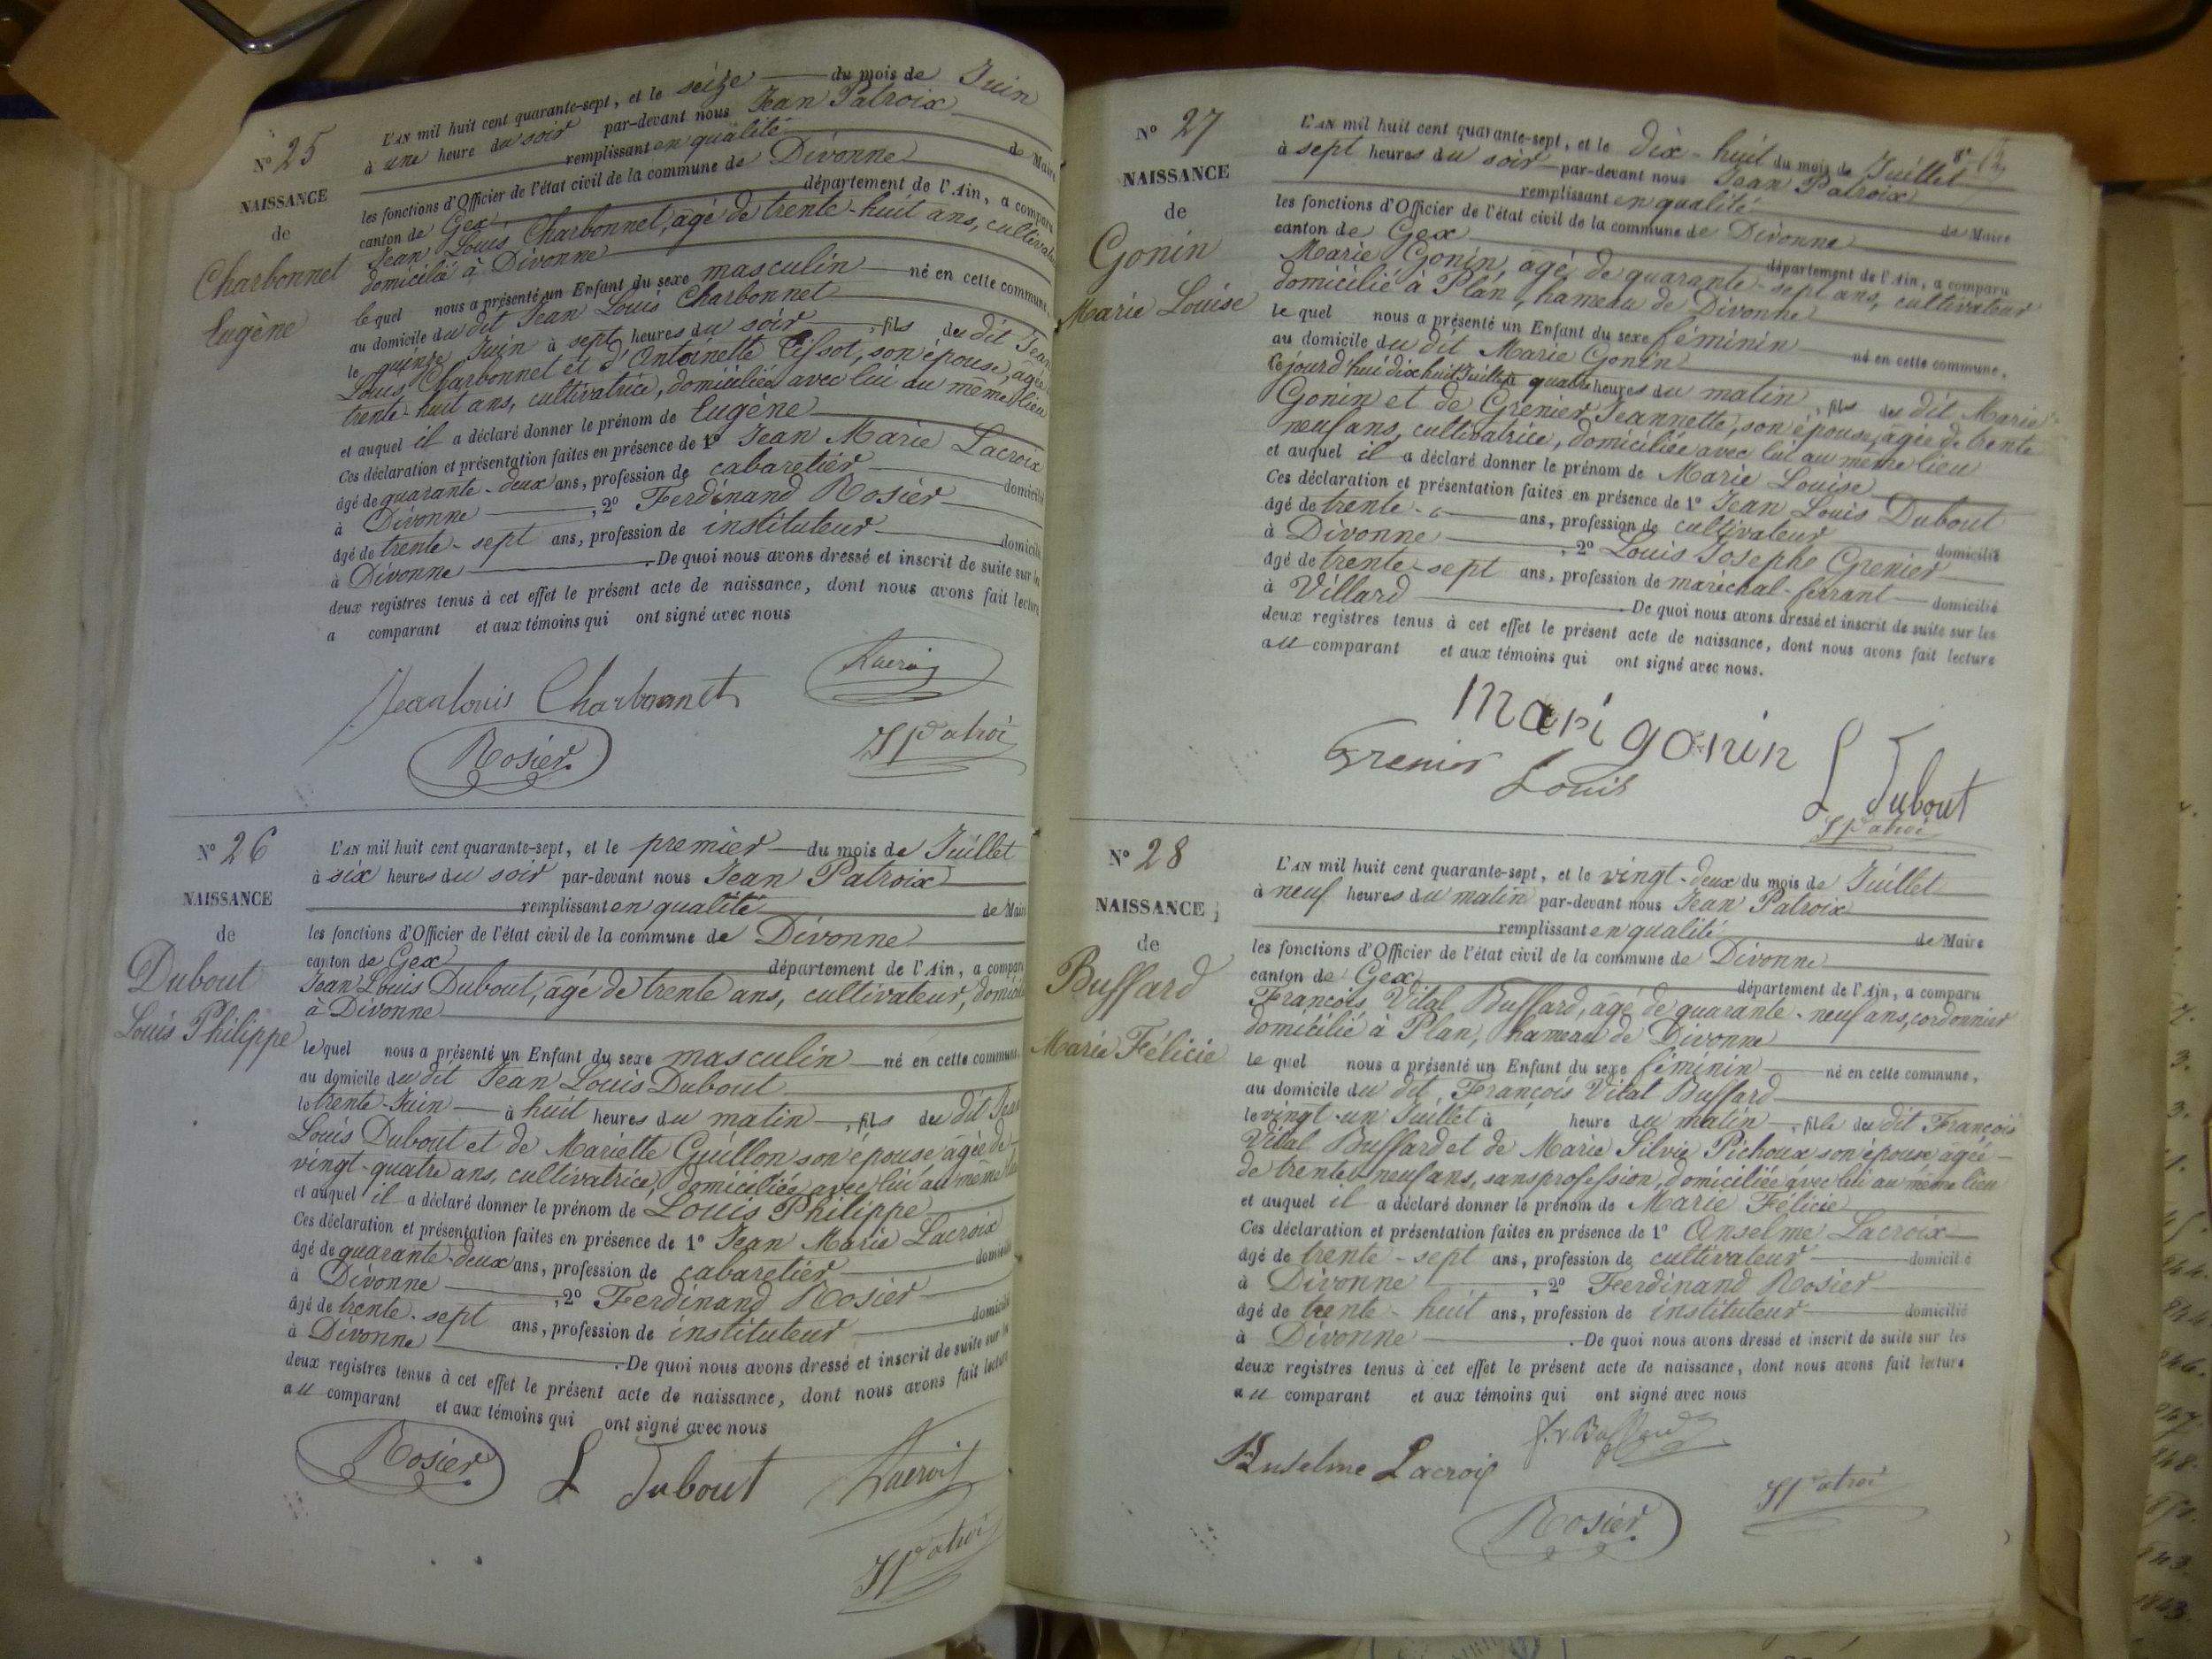 N° 25
NAISSANCE
de
Charbonnet
Eugène
L'AN mil huit cent quarante-sept, et le seize du mois de Juin
à une heure du soir par-devant nous Jean Patroix
remplissant en qualité de Maire
les fonctions d'Officier de l'état civil de la commune de Divonne
canton de Gex département de l'Ain, a comparu
Jean Louis Charbonnet, âgé de trente-huit ans, cultivateur
domicilié à Divonne
lequel nous a présenté un Enfant du sexe masculin né en cette commune,
au domicile du dit Jean Louis Charbonnet
le quinze Juin à sept heures du soir, fils du dit Jean
Louis Charbonnet et d'Antoinette Tissot, son épouse, âgée
trente-huit ans, cultivatrice, domiciliée avec lui au même lieu
et auquel il a déclaré donner le prénom de Eugène
Ces déclaration et présentation faites en présence de 1° Jean Marie Lacroix
âgé de quarante-deux ans, profession de cabaretier domicilié
à Divonne, 2° Ferdinand Rosier
âgé de trente-sept ans, profession de instituteur domicilié
à Divonne. De quoi nous avons dressé et inscrit de suite sur les
deux registres tenus à cet effet le présent acte de naissance, dont nous avons fait lecture
a comparant et aux témoins qui ont signé avec nous
Jean louis Charbonnet Lacroix
Rosier JPatroi
N° 26
NAISSANCE
de
Dubout
Louis Philippe
L'AN mil huit cent quarante-sept, et le premier du mois de Juillet
à six heures du soir par-devant nous Jean Patroix
remplissant en qualité de Maire
les fonctions d'Officier de l'état civil de la commune de Divonne
canton de Gex département de l'Ain, a comparu
Jean Louis Dubout, âgé de trente ans, cultivateur, domicilié
à Divonne
lequel nous a présenté un Enfant du sexe masculin né en cette commune,
au domicile du dit Jean Louis Dubout
le trente Juin à huit heures du matin, fils du dit Jean
Louis Dubout et de Mariette Guillon son épouse âgée de
vingt-quatre ans, cultivatrice, domiciliée avec lui au même lieu
et auquel il a déclaré donner le prénom de Louis Philippe
Ces déclaration et présentation faites en présence de 1° Jean Marie Lacroix
âgé de quarante-deux ans, profession de cabaretier domicilié
à Divonne, 2° Ferdinand Rosier
âgé de trente-sept ans, profession de instituteur domicilié
à Divonne. De quoi nous avons dressé et inscrit de suite sur les
deux registres tenus à cet effet le présent acte de naissance, dont nous avons fait lecture
au comparant et aux témoins qui ont signé avec nous
Rosier L Dubout Lacroix
JPatroi
N° 27
NAISSANCE
de
Gonin
Marie Louise
L'AN mil huit cent quarante-sept, et le dix-huit du mois de Juillet
à sept heures du soir par-devant nous Jean Patroix
remplissant en qualité de Maire
les fonctions d'Officier de l'état civil de la commune de Divonne
canton de Gex département de l'Ain, a comparu
Marie Gonin âgé de quarante-sept ans, cultivateur
domicilié à Plan, hameau de Divonne
le quel nous a présenté un Enfant du sexe féminin né en cette commune,
au domicile du dit Marie Gonin
le jourd'hui dix huit Juillet à quatre heures du matin, fils du dit Marie
Gonin et de Grenier Jeannette, son épouse, âgée de trente
neuf ans, cultivatrice, domiciliée avec lui au même lieu
et auquel il a déclaré donner le prénom de Marie Louise
Ces déclaration et présentation faites en présence de 1° Jean Louis Dubout
âgé de trente ans, profession de cultivateur domicilié
à Divonne, 2° Louis Josephe Grenier
âgé de trente-sept ans, profession de maréchal-ferrant domicilié
à Villard. De quoi nous avons dressé et inscrit de suite sur les
deux registres tenus à cet effet le présent acte de naissance, dont nous avons fait lecture
au comparant et aux témoins qui ont signé avec nous.
Mari gonin
Grenier Louis L Dubout
JPatroi
N° 28
NAISSANCE
de
Buffard
Marie Félicie
L'AN mil huit cent quarante-sept, et le vingt-deux du mois de Juillet
à neuf heures du matin par-devant nous Jean Patroix
remplissant en qualité de Maire
les fonctions d'Officier de l'état civil de la commune de Divonne
canton de Gex département de l'Ain, a comparu
François Vital Buffard, âgé de quarante-neuf ans, cordonnier
domicilié à Plan, hameau de Divonne
le quel nous a présenté un Enfant du sexe féminin né en cette commune,
au domicile du dit François Vital Buffard
le vingt-un Juillet à heure du matin, fille du dit François
Vital Buffard et de Marie Silvie Pichoux son épouse âgée
de trente-neuf ans, sans profession, domiciliée avec lui au même lieu
et auquel il a déclaré donner le prénom de Marie Félicie
Ces déclaration et présentation faites en présence de 1° Anselme Lacroix
âgé de trente-sept ans, profession de cultivateur domicilié
à Divonne, 2° Ferdinand Rosier
âgé de trente-huit ans, profession de instituteur domicilié
à Divonne. De quoi nous avons dressé et inscrit de suite sur les
deux registres tenus à cet effet le présent acte de naissance, dont nous avons fait lecture
au comparant et aux témoins qui ont signé avec nous
f. v. Buffard
Anselme Lacroix
Rosier JPatroi